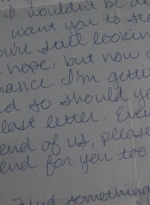 I wouldn't be
want you to
you're still lookin
hope, but now
mance. I'm gett
d so should yo
last letter. Eve
end of us, please
end for you too
Find something